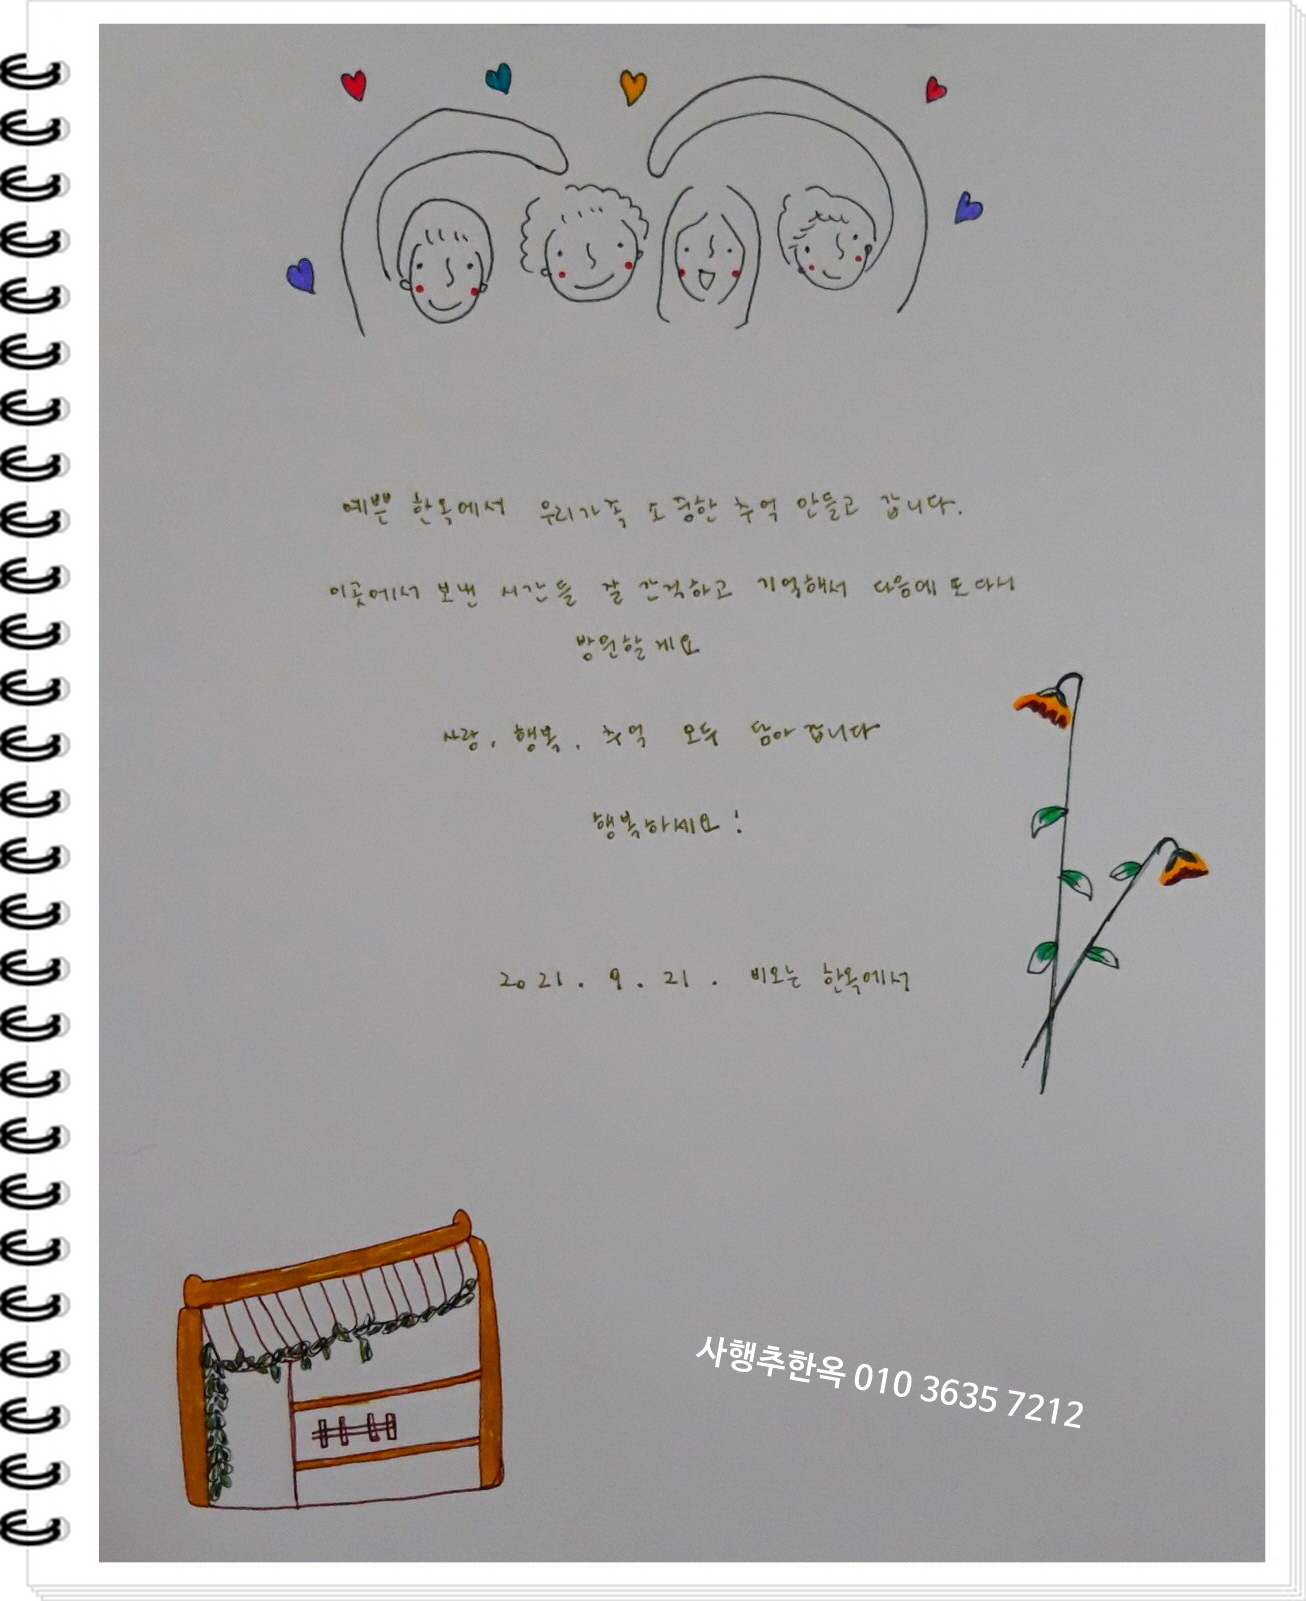 예쁜 한옥에서 우리가족 소중한 추억 만들고 갑니다.
이곳에서 보낸 시간들 잘 간직하고 기억해서 다음에 또 다시
방문할게요
사랑, 행복, 추억 모두 담아 갑니다
행복하세요!
2021. 9. 21. 비오는 한옥에서
사행추한옥 010 3635 7212